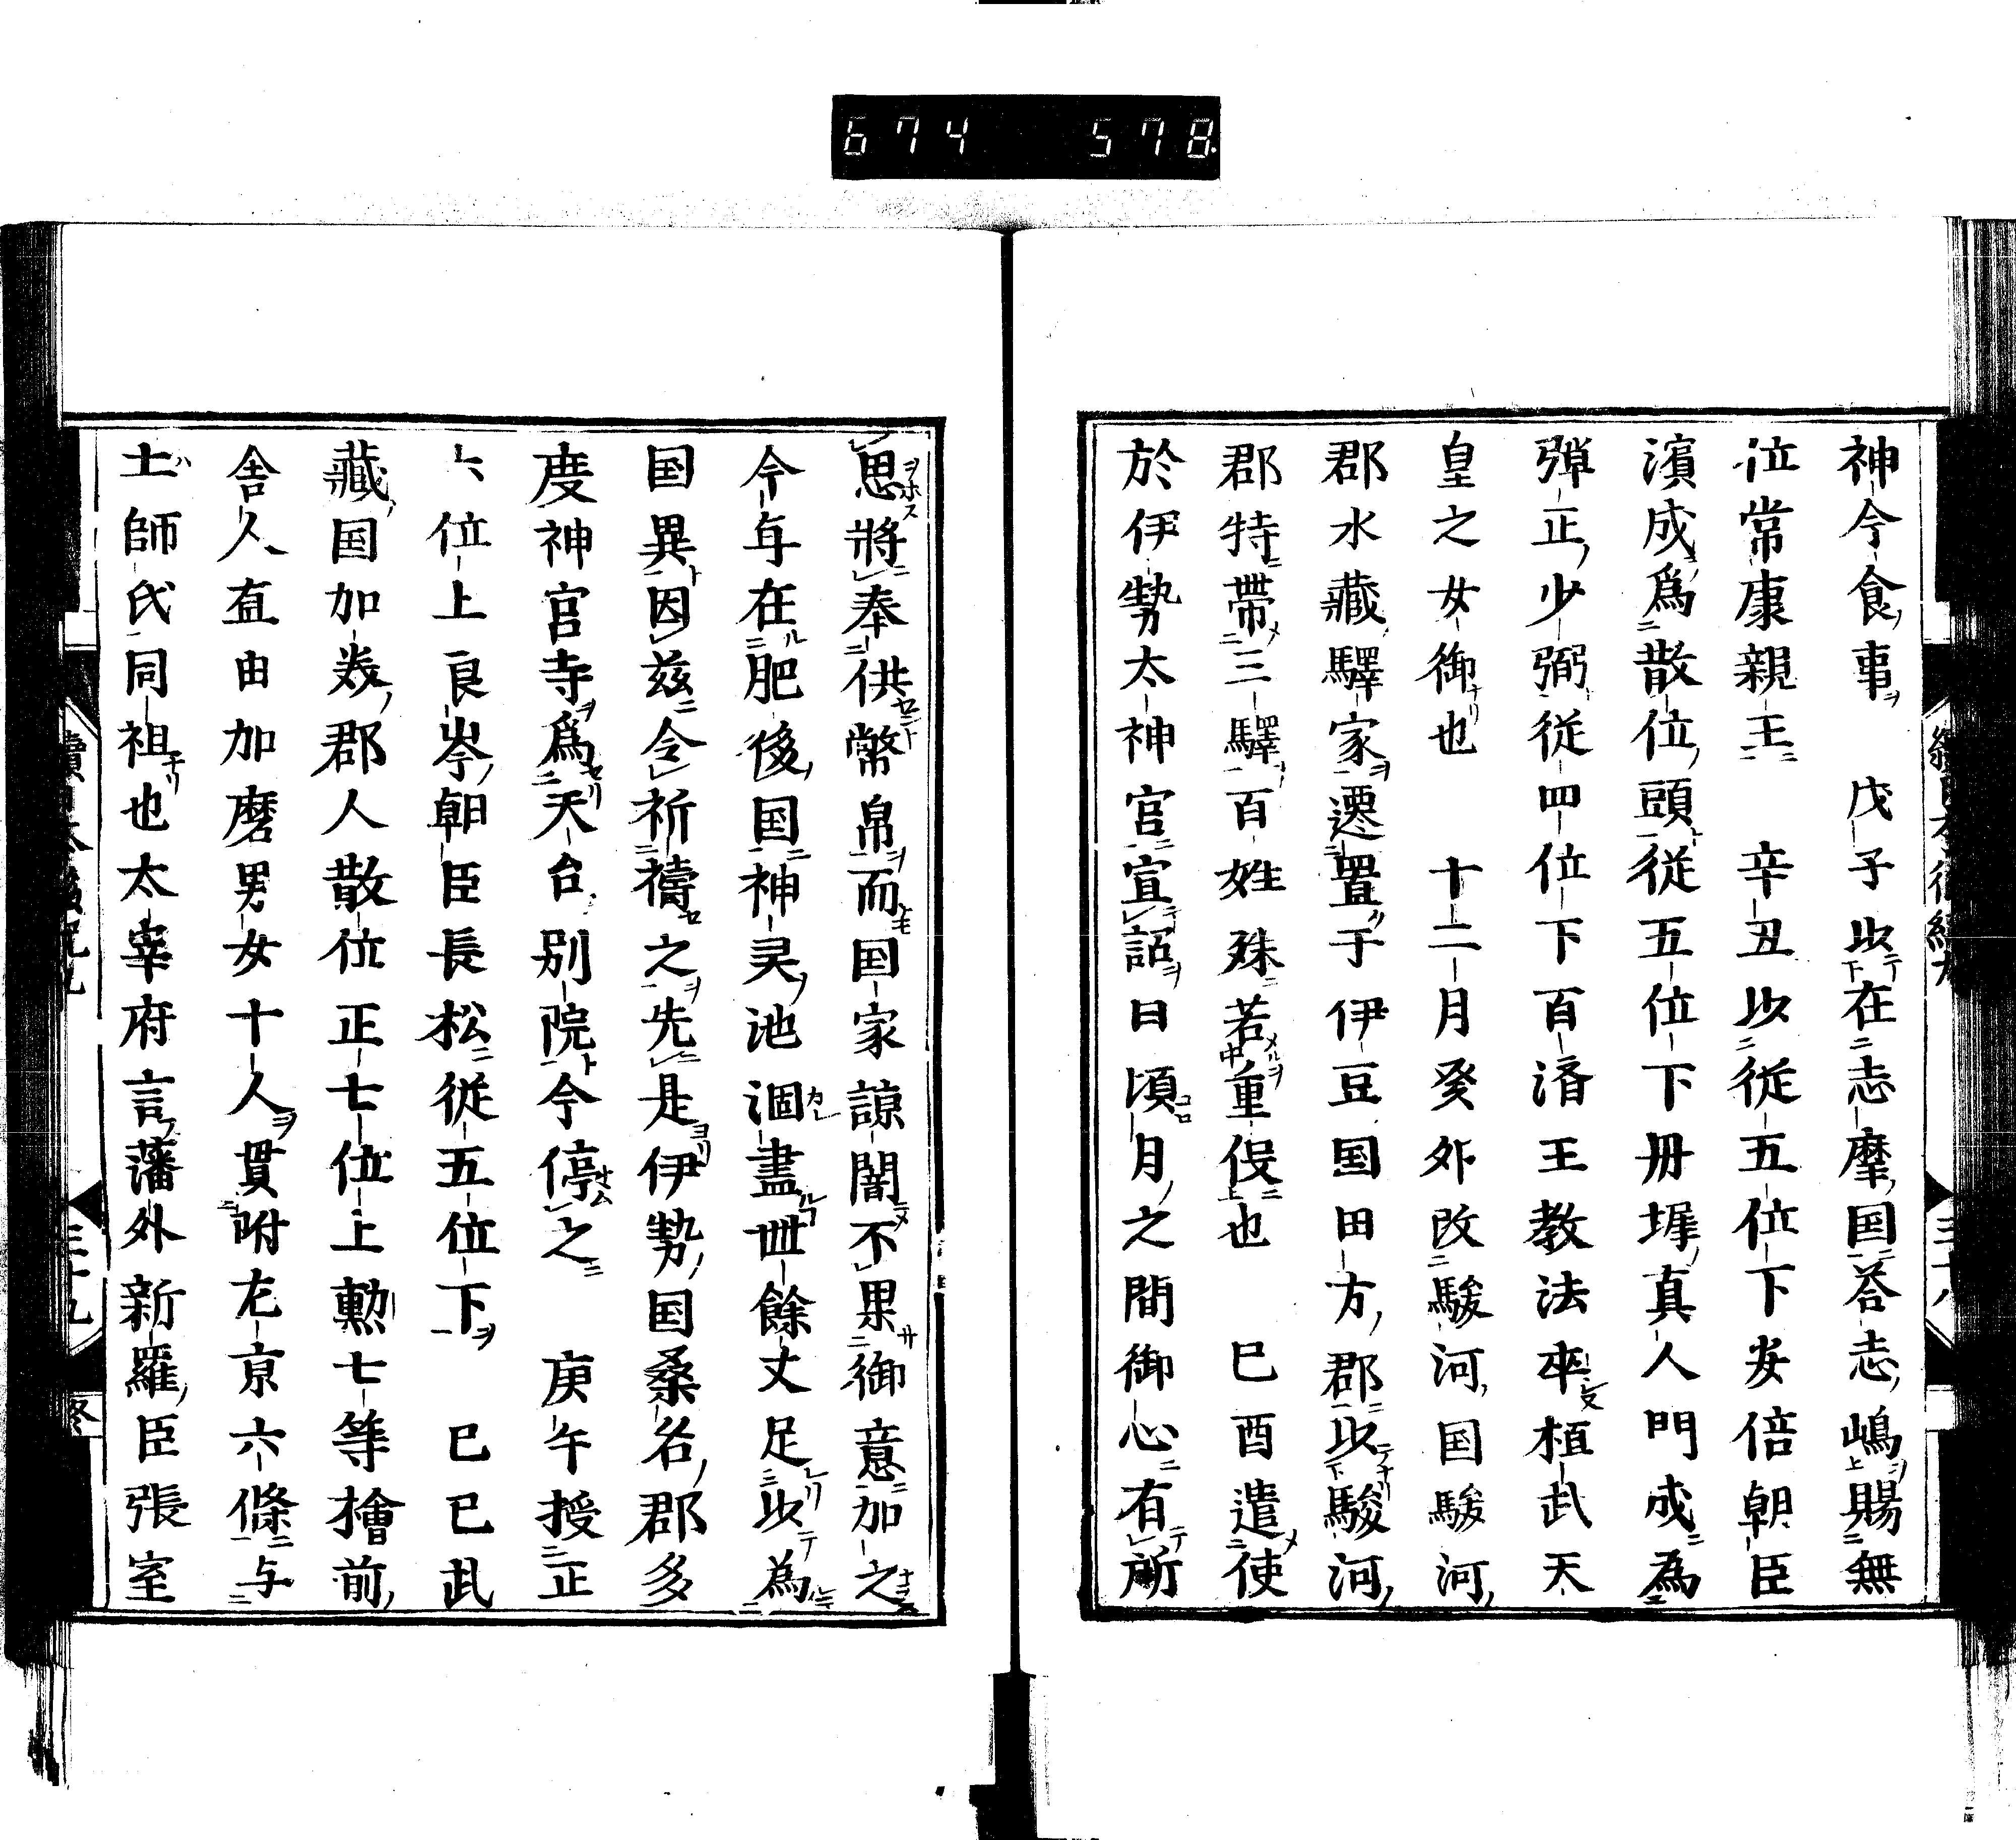 674 578
神今食事　戊子以在志摩国荅志嶋賜無
位常康親王　辛丑以従五位下安倍朝臣
濱成爲散位頭従五位下冊墀真人門成為
弾正少弼従四位下百済王教法卒桓武天
皇之女御也　十二月癸夘改駿河国駿河
郡水藏驛家遷置于伊豆国田方郡以駿河
郡特帶三驛百姓殊若重伇也　巳酉遣使
於伊勢太神宮宣詔曰頃月之間御心有所
思將奉供幣帛而国家諒闇不果御意加之
今年在肥後国神灵池涸盡卌餘丈足以為
国異因茲令祈禱之先是伊勢国桑名郡多
度神宮寺爲天台別院今停之　庚午授正
六位上良岑朝臣長松従五位下　巳巳武
藏国加美郡人散位正七位上勲七等檜前
舎人直由加麿男女十人貫附左京六條与
土師氏同祖也太宰府言藩外新羅臣張宝